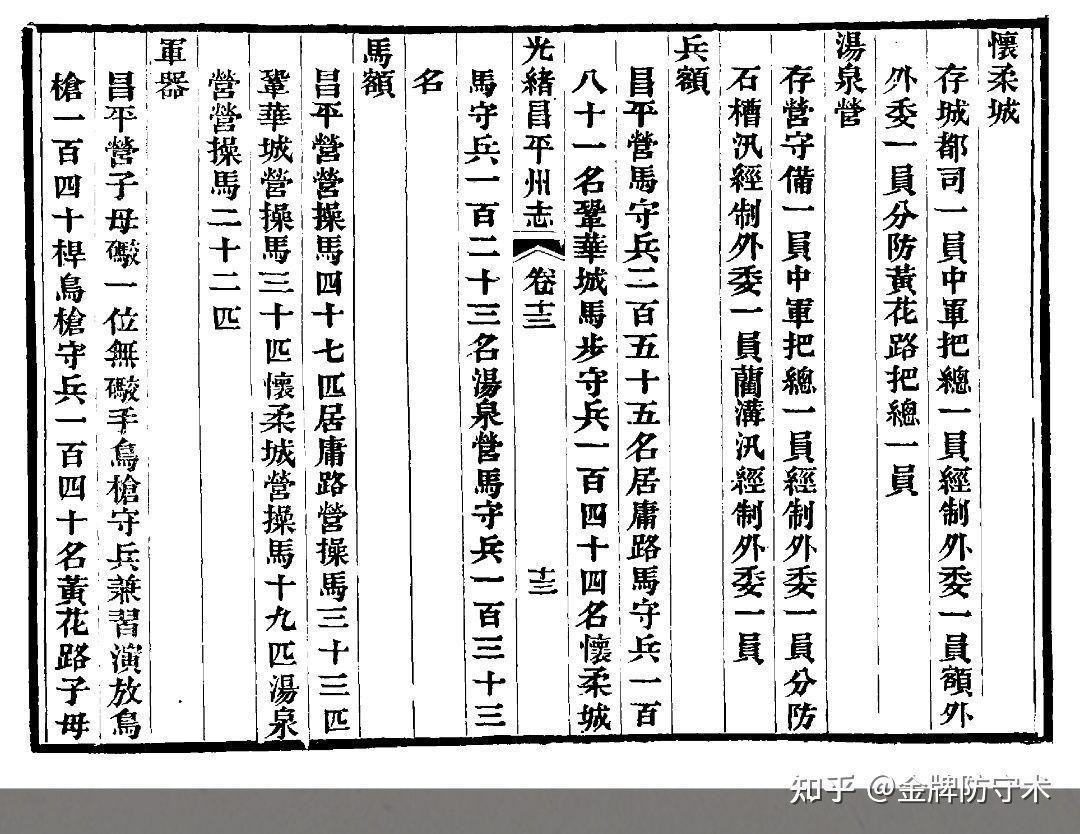 懷柔城
存城都司一員中軍把總一員經制外委一員額外
外委一員分防黃花路把總一員
湯泉營
存營守備一員中軍把總一員經制外委一員分防
石槽汛經制外委一員藺溝汛經制外委一員
兵額
昌平營馬守兵二百五十五名居庸路馬守兵一百
八十一名鞏華城馬步守兵一百四十四名懷柔城
光緒昌平州志 卷十三 十三
馬守兵一百二十三名湯泉營馬守兵一百三十三
名
馬額
昌平營營操馬四十七匹居庸路營操馬三十三匹
鞏華城營操馬三十匹懷柔城營操馬十九匹湯泉
營營操馬二十二匹
軍器
昌平營子母礮一位無礮手鳥槍守兵兼習演放鳥
槍一百四十桿鳥槍守兵一百四十名黃花路子母
知乎 @金牌防守术